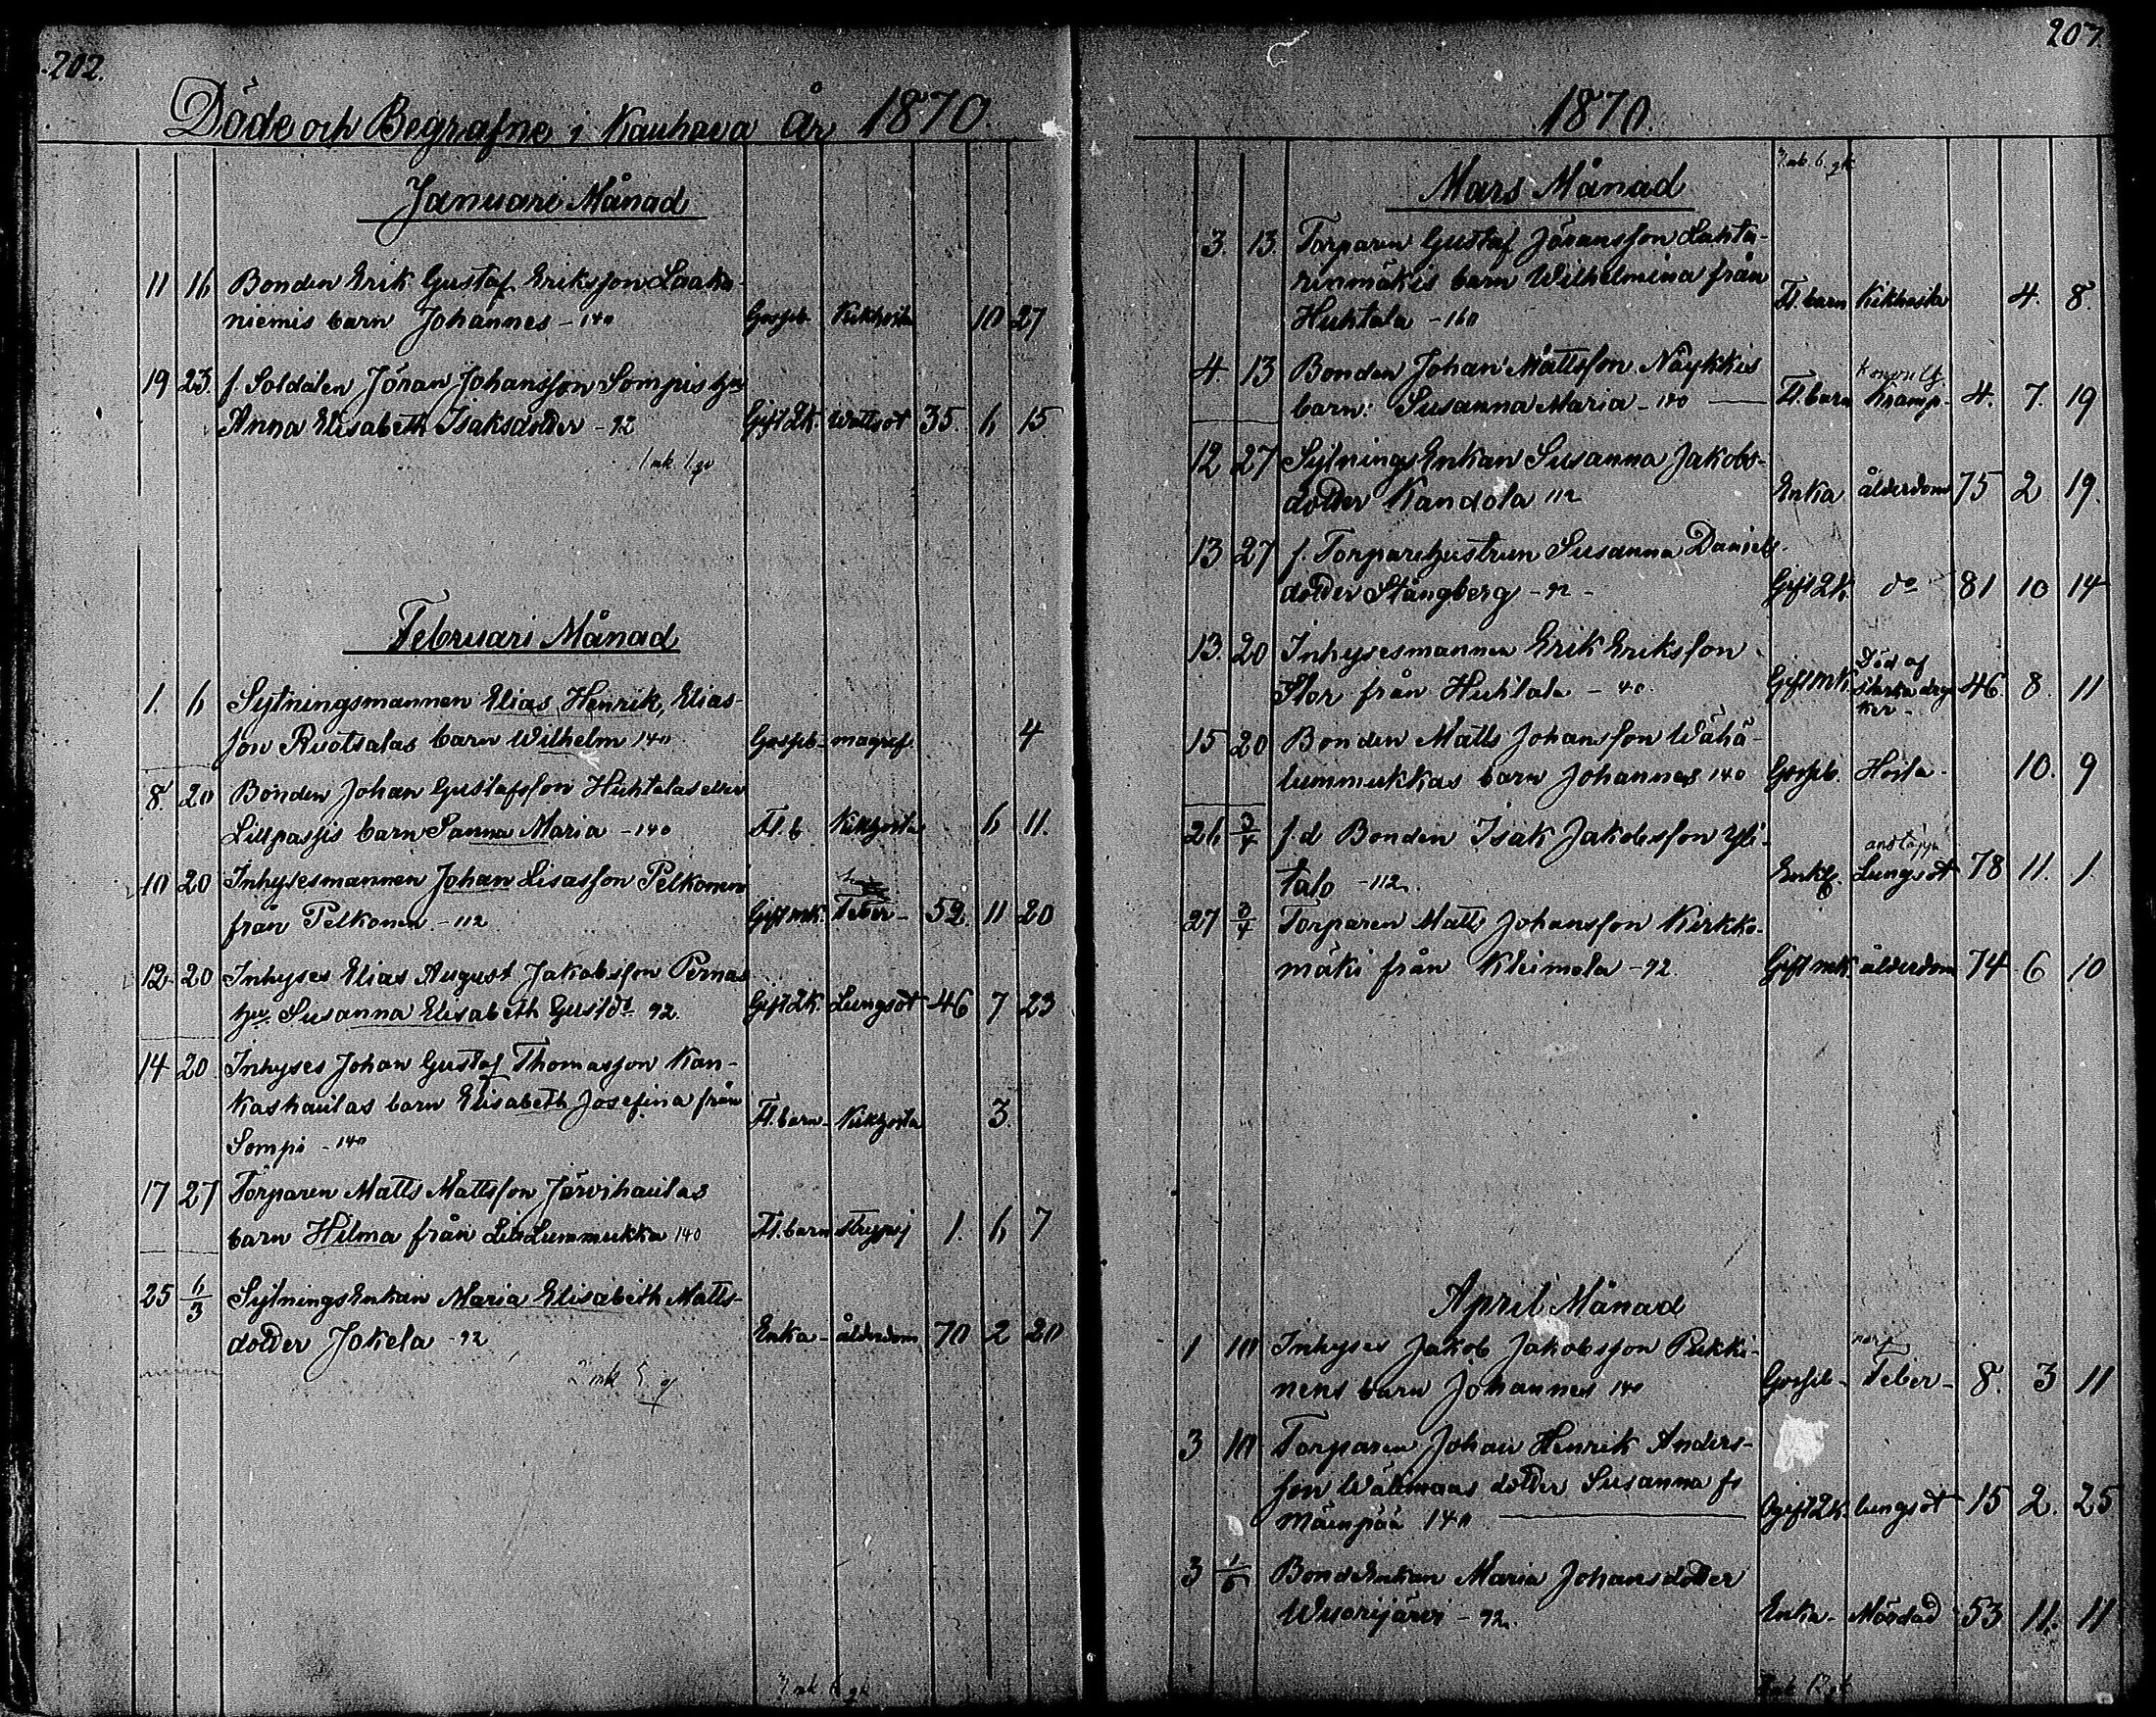 202.
Döde och Begrafne i Kauhava År 1870.
Januari Månad
11 16 Bonden Erik Gustaf Eriksson Laaka-
niemis barn Johannes - 140 Gosseb. Kikhosta 10 27
19 23. f. Soldaten Jöran Johansson Sompis hu
Anna Elisabeth Isaksdotter - 92 Gift Qk. Wattsot 35. 6 15.
1 mk. 1 qv
Februari Månad
1. 6 Sytningsmannen Elias Henrik, Elias-
son Ruotsalas barn Wilhelm 140 Gosseb. magref. 4
8 20 Bonden Johan Gustafsson Huhtalas eller
Lillpassis barn Sanna Maria - 140 Fl. b Kikhosta 6 11.
10 20 Inhysesmannen Johan Lisasson Pelkonen
från Pelkonen - 112 Gift mk. Feber - 52. 11 20
12. 20 Inhyses Elias August Jakobsson Pernas
hu. Susanna Elisabeth Gustdr 92. Gift Qk. Lungsot 46 7 23
14 20. Inhyses Johan Gustaf Thomasson Kan-
kashaulas barn Elisabeth Josefina från
Sompi - 140 Fl. barn - Kikhosta 3.
17 27 Torparen Matts Mattsson Järvihaulas
barn Hilma från Lill Lummukka 140 Fl. barn strypsj 1. 6 7
25 6/3 Sytnings Enkan Maria Elisabeth Matts-
dotter Jokela - 92 Enka - ålderdom 70 2 20
2 mk 5 q
3 mk 6 qk
207.
1870.
3 mk. 6 qk
Mars Månad
3. 13. Torparen Gustaf Jöransson Lahta-
rinmäkis barn Wilhelmina från
Huhtala - 160 Fl. barn Kikhosta 4. 8.
4. 13 Bonden Johan Mattsson Näykkis
barn: Susanna Maria - 140 Fl. barn konvuls. Kramp. 4. 7. 19
12 27 Sytnings Enkan Susanna Jakobs-
dotter Kandola 112 Enka ålderdom 75 2 19.
13 27 f. Torparehustrun Susanna Daniels-
dotter Stångberg - 92 - Gift Qk. do 81 10 14
13. 20 Inhysesmannen Erik Eriksson
Stor från Huhtala - 40. Gift mk. Död af starka dryc ker - 46. 8. 11
15 20 Bonden Matts Johansson Wähä-
lummukkas barn Johannes 140 Gosseb. Hosta - 10. 9
26 3/4 f.d Bonden Isak Jakobsson Yli-
talo - 112. Enkl. Lungsot 78 11. 1.
27 3/4 Torparen Matts Johansson Kirkko-
mäki från Kleimola - 92. Gift mk. ålderdom 74 6 10
April Månad
1 10 Inhyses Jakob Jakobsson Pukki-
nens barn Johannes 140 Gosseb - nerf Feber - 8. 3 11
3 10 Torparen Johan Henrik Anders-
son Wälimaas dotter Susanna fr
Mäenpää 140 Ogift Qk. lungsot 15 2. 25
3 Bonde Enkan Maria Johansdotter
Wuorijärvi - 92. Enka - Mördad 53 11. 11